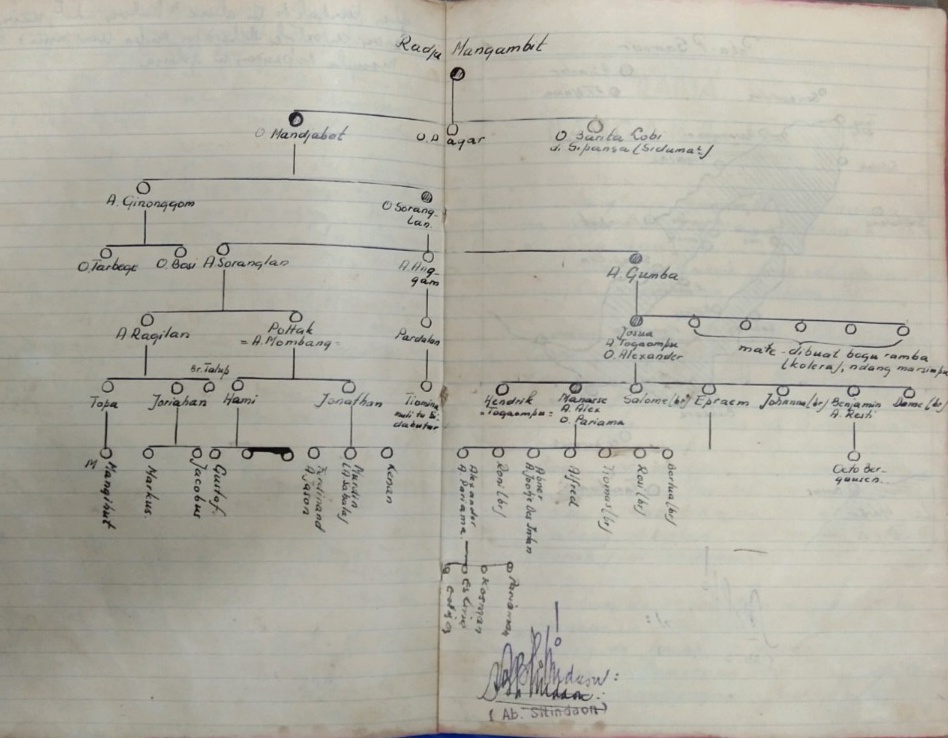 Radja Mangambit
O. Mandjabat
O. D agar
O. Barita Lobi
d. Sipansa (Sidumat)
A. Ginonggom
O Sorang-
lan.
O. Tarbege
O. Basi
A. Soranglan
A. Ang-
gam
A. Gumba
A. Ragilan
Poltak
= A. Mombang =
Pardolan
Josua
A. Togaompu
O. Alexander
mate - dibuat begu ramba
(kolera), ndang marsimpu
Br. Talup
Topa
Joriahan
Hami
Jonathan
Tiomina
muli tu Si-
dabutar
Hendrik
"Togaompu"
Manasse
A. Alex
O. Pariama
Salome (br)
Epraem
Johanna (br)
Benjamin
A. Resti
Dame (br)
M
Mangihut
Markus.
Jacobus
Gustaf.
Ferdinand
A. Jason
Murdin
Kenan
Alexander
A. Pariama
Roni (br)
Abner
Alfred
Tiomas (br)
Rosi (br)
Bertua (br)
Octo Ber-
gausen..
Kosman
Pariaman
( Ab. Sitindaon )